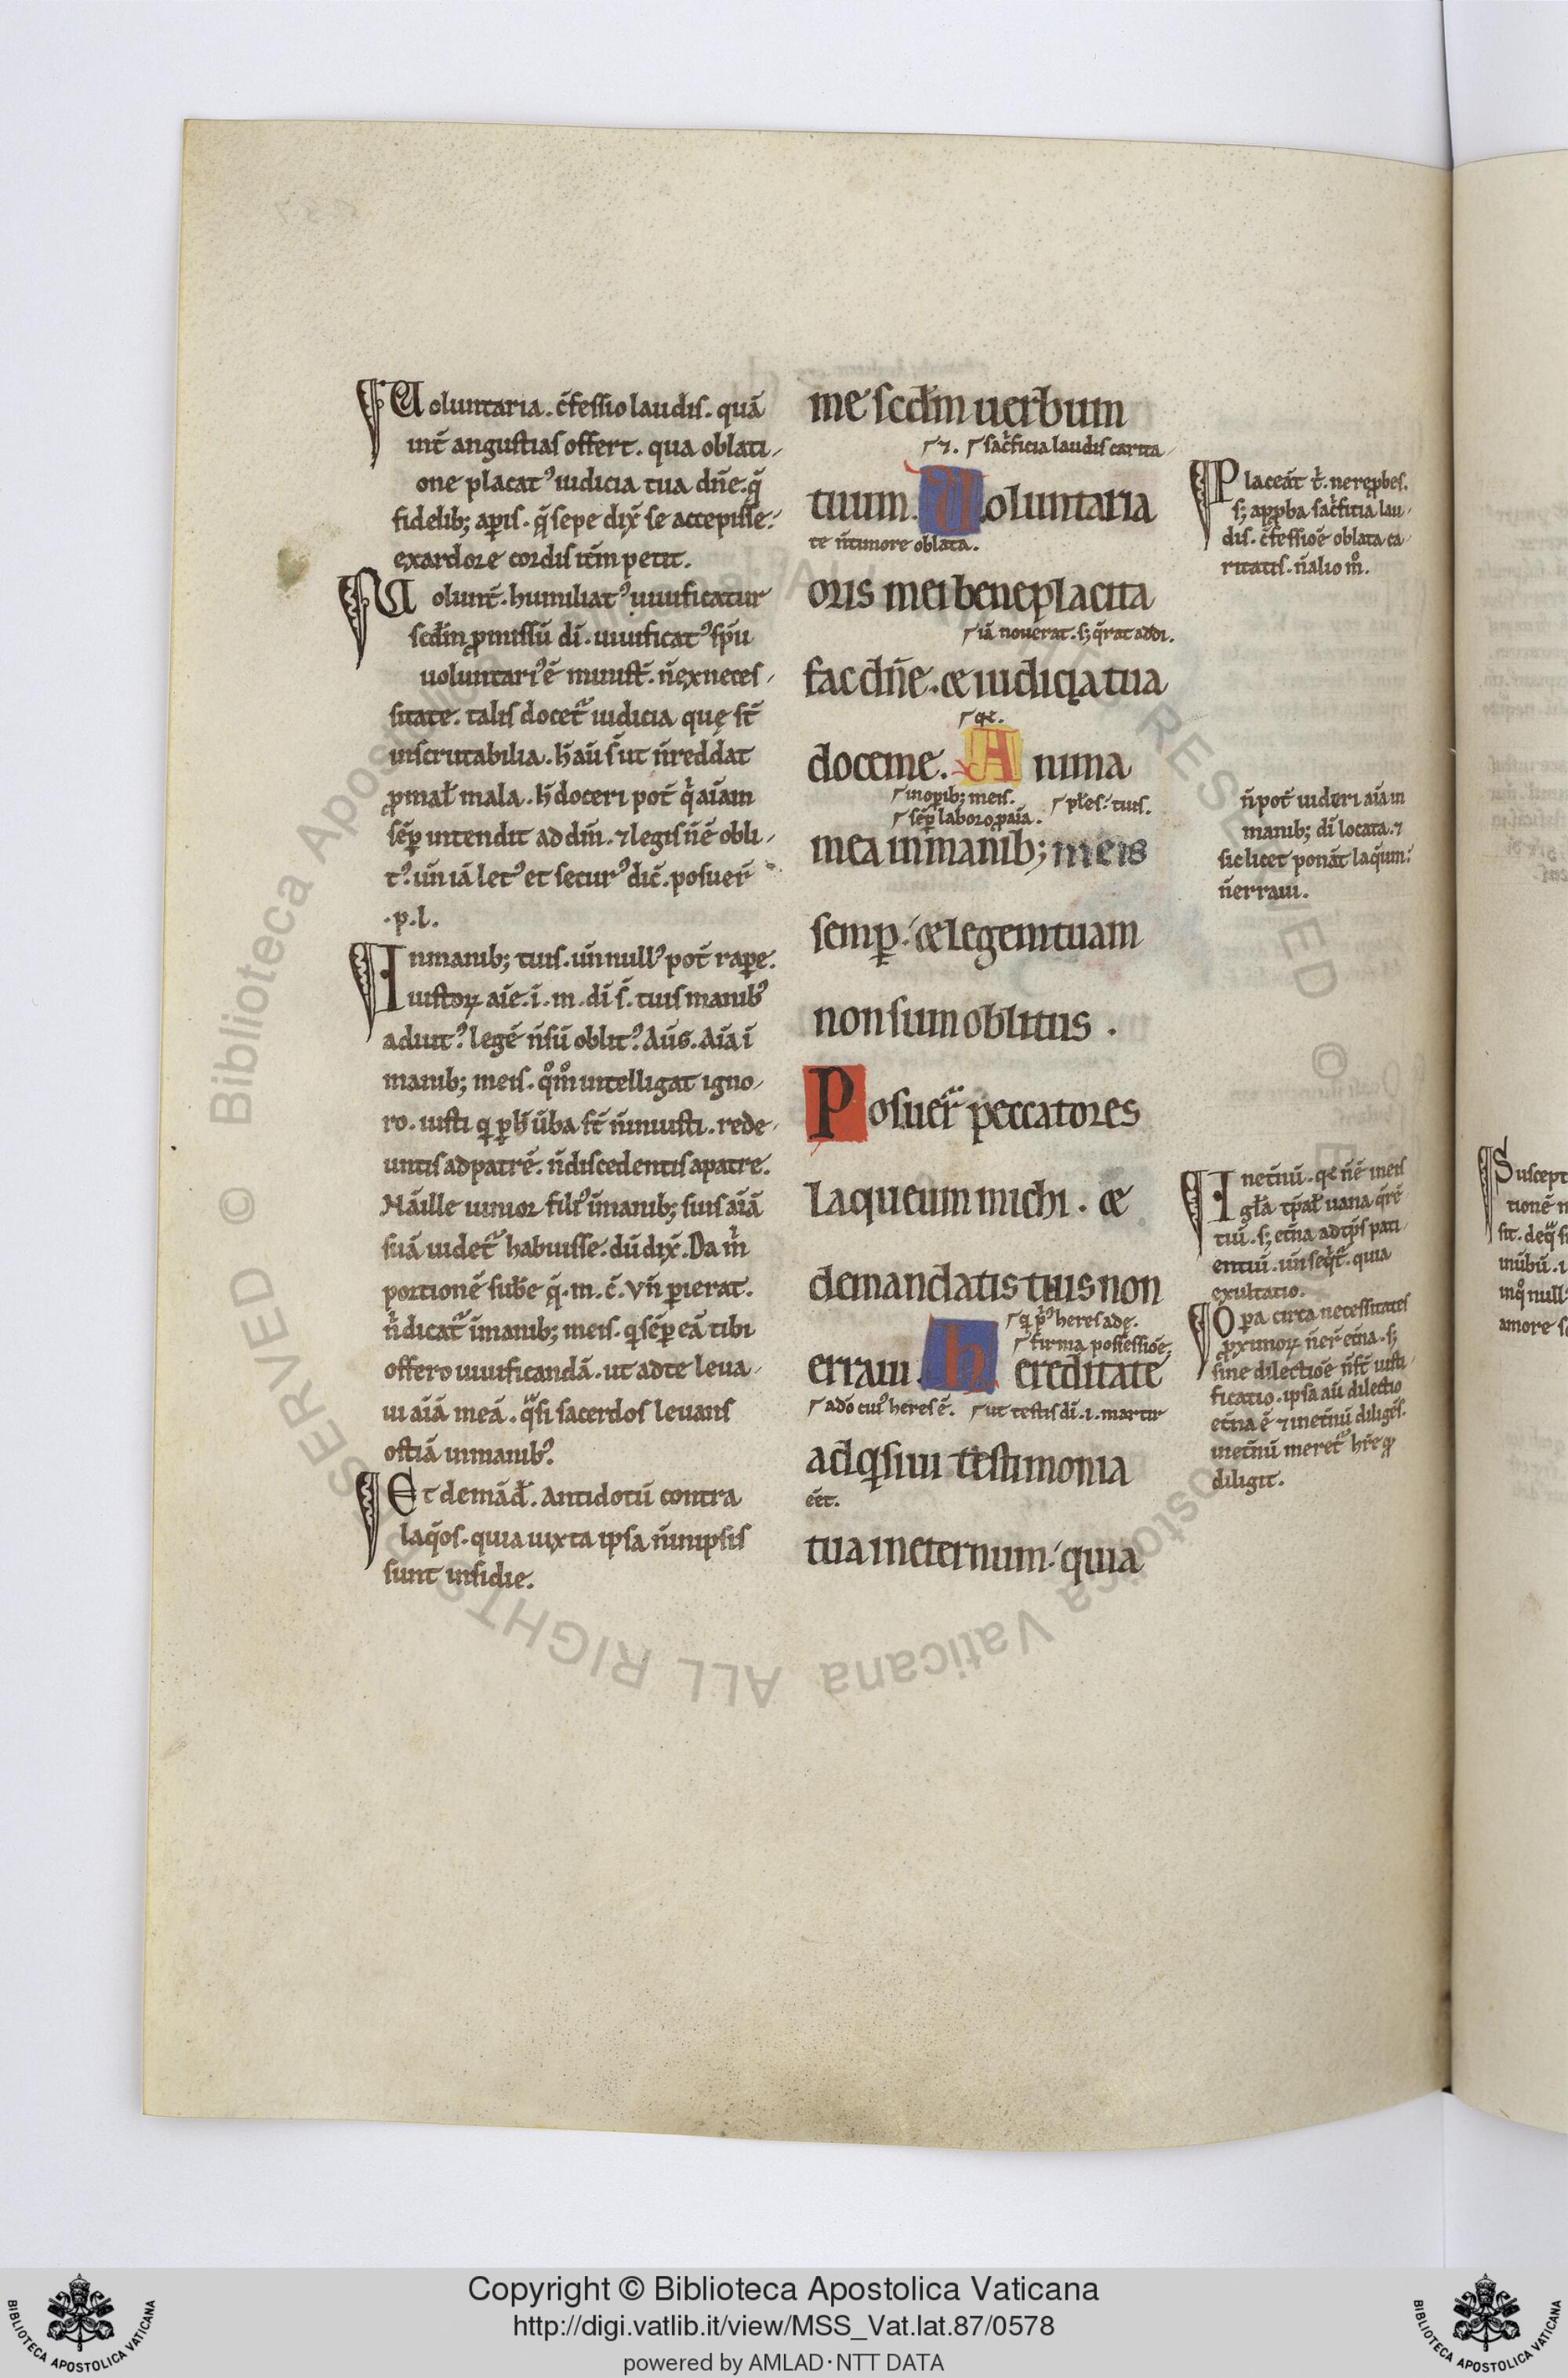 Uoluntaria. c̄fessio laudis. quā
int̄ angustias offert. qua oblati-
one placatꝰ iudicia tua dn̄e. q̄
fidelib; aꝑis. q̄ sepe dix̄ se accepisse.
ex ardore cordis itm̄ petit.
Uolunt̄. humiliatꝰ uiuificatur
scd̄m ꝓmissū dī. uiuificatꝰ sp̄u
uoluntariꝰ ē minist̄. n̄ ex neces-
sitate. talis docet᷑ iudicia quę st̄
inscrutabilia. h̄ aū s̄ ut n̄ reddat
ꝓ mal̄ mala. h̄ doceri pot̄ q̄ aīam
sēꝑ intendit ad dm̄. ⁊ legis n̄ ē obli-
tꝰ. un̄ iā letꝰ et securꝰ dic̄. posuer̄
.p.l.
In manib; tuis. un̄ nullꝰ pot̄ raꝑe.
iustoꝝ aīe. i. m. dī s̄. tuis manibꝰ
adiutꝰ. legē n̄ sū oblitꝰ. Aūg. Aīa ī
manib; meis. qͦmͦ intelligat igno-
ro. iusti q ꝑ h̄ ūba st̄ n̄ iniusti. rede-
untis ad patrē. n̄ discedentis a patre.
Nā ille iunior filiꝰ ī manib; suis aīā
suā uidet᷑ habuisse. dū dix̄. Da m̄
portionē sub̄e q̄. m. c̄. Vn̄ ꝑierat.
n̄ dicat᷑ ī manib; meis. q sēꝑ eā tibi
offero uiuificandā. ut ad te leua-
ui aīā meā. q̄si sacerdos leuans
ostiā in manibꝰ.
Et demād̄. Antidotū contra
laq̄os. quia iuxta ipsa n̄ in ipsis
sunt insidie.
me scd̄m uerbum
⁊. sac̄ficia laudis carita-
tuum. Uoluntaria
te n̄ timore oblata.
oris mei beneplacita
iā nouerat. s; q̄rat addi.
fac dn̄e. & iudicia tua
qꝛ.
doce me. Anima
in oꝑib; meis.
sēꝑ laboro ꝓ aīa.
mea in manib; meis
semꝑ. & legem tuam
non sum oblitus.
Posuer̄ peccatores
laqueum michi. &
de mandatis tuis non
q pͥꝰ heres adę.
firma possessiōe.
erraui. hereditate
a dō cuiꝰ heres ē. ut testis dī. i. martir
adqͥsiui testimonia
eēt.
tua in eternum. quia
Placeāt t̄. ne reꝓbes.
s; apꝓba sac̄ficia lau-
dis. c̄fessiōe oblata ca-
ritatis. n̄ alio mͦ.
n̄ pot̄ uideri aīa in
manib; dī locata. ⁊
sic licet ponāt laq̄um.
n̄ erraui.
In et̄nū. qꝛ n̄ ē meis
gl̄a tp̄al̄ uana q̄rē
entiū. un̄ seq̄t᷑. quia
exultatio.
Oꝑa circa necessitates
ꝓximoꝝ n̄ er̄ et̄na. s;
sine dilectiōe n̄ st̄ iusti-
ficatio. ipsa aū dilectio
et̄na ē ⁊ in et̄nū diligēs.
in et̄nū meret᷑ hr̄e q
diligit.
Suscept
tionē
amore
Copyright © Biblioteca Apostolica Vaticana
http://digi.vatlib.it/view/MSS_Vat.lat.87/0578
powered by AMLAD·NTT DATA
BIBLIOTECA APOSTOLICA VATICANA
BIBLIOTECA APOSTOLICA VATICANA
© Biblioteca Apostolica Vaticana ALL RIGHTS RESERVED